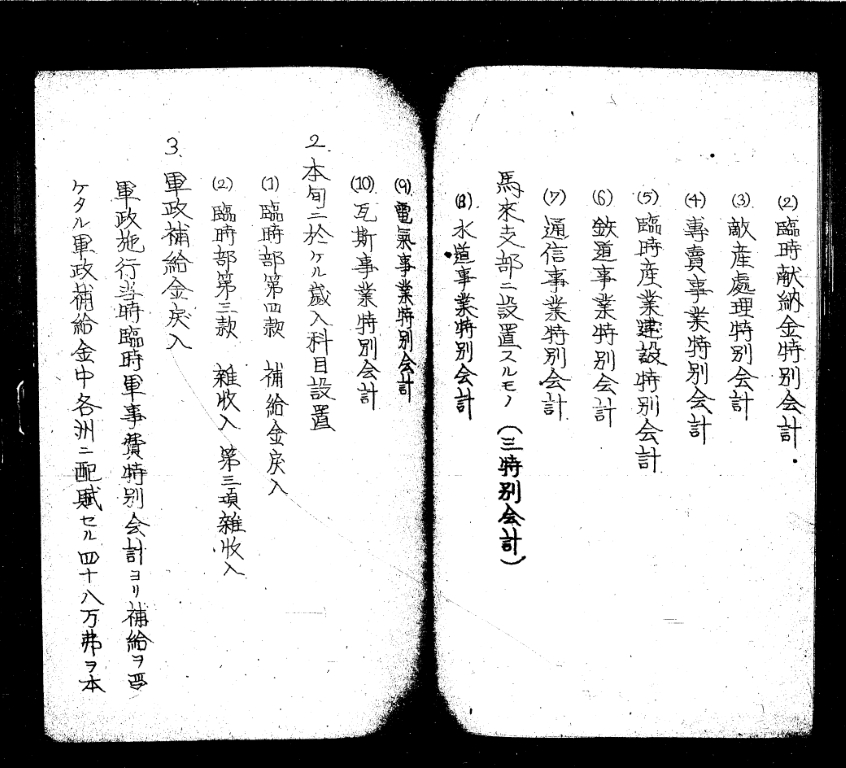 (2) 臨時献納金特別会計.
(3) 敵産處理特別会計
(4) 專賣事業特別会計
(5) 臨時産業建設特別会計
(6) 鉄道事業特別会計
(7) 通信事業特別会計
馬來支部ニ設置スルモノ(三特別会計)
(8) 水道事業特別会計
(9) 電氣事業特別会計
(10) 瓦斯事業特別会計
2. 本旬ニ於ケル歳入科目設置
(1) 臨時部第四款 補給金戻入
(2) 臨時部第三款 雑收入 第三項雑收入
3. 軍政補給金戻入
軍政施行当時臨時軍事費特別会計ヨリ補給ヲ受
ケタル軍政補給金中各洲ニ配賦セル四十八万弗ヲ本